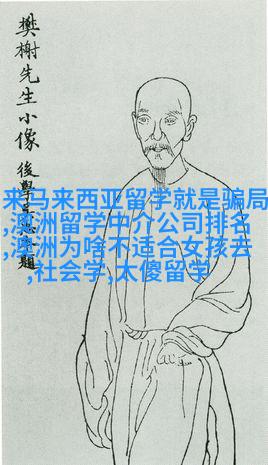 樊榭先生小像
後學
題
来马来西亚留学就是骗局
,澳洲留学中介公司排名
,澳洲为啥不适合女孩去
,社会学,太傻留学